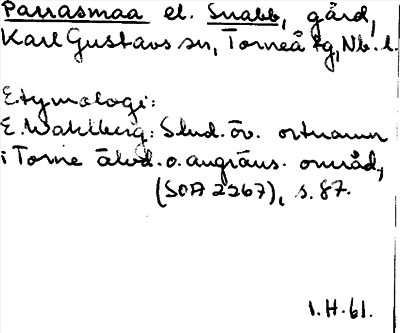 Parrasmaa el. Snabb, gård,
Karl Gustavs sn, Torneå tg, Nb. l.
Etymologi:
E. Wahlberg: Stud. öv. ortnamn
i Torne älvd. o. angräns. områd,
(SOA 2267), s. 87.
1.H.61.